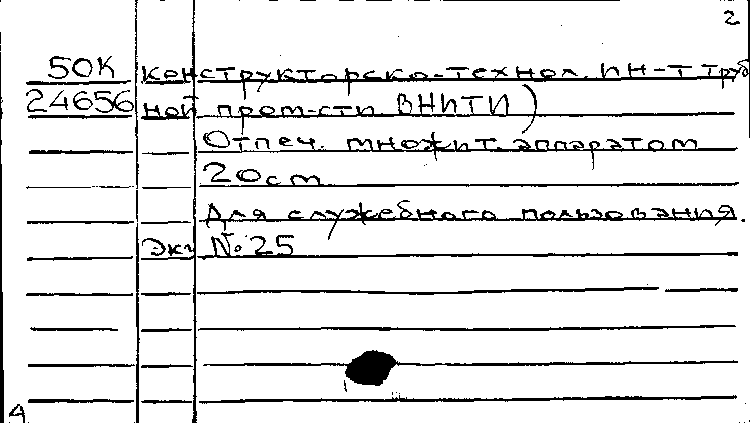 2
50К Конструкторско-технол. ин-т труб
24656 ной пром-сти ВНИТИ)
Отпеч. множит. аппаратом
20 cm
Для служебного пользования.
Экз № 25
4